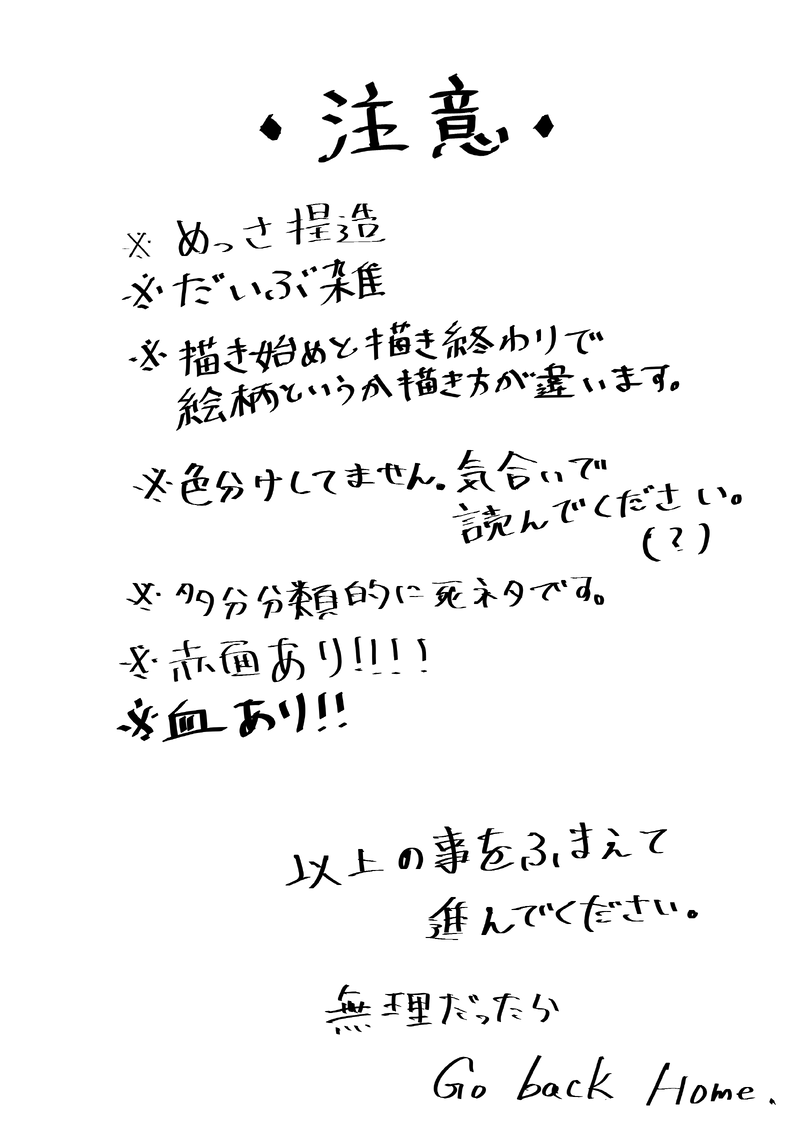 ・注意・
※めっさ捏造
※だいぶ雑
※描き始めと描き終わりで
絵柄というか描き方が違います。
※色分けしてません。気合いで
読んでください。
(?)
※多分分類的に死ネタです。
※赤面あり!!!!
※血あり!!
以上の事をふまえて
進んでください。
無理だったら
Go back Home.